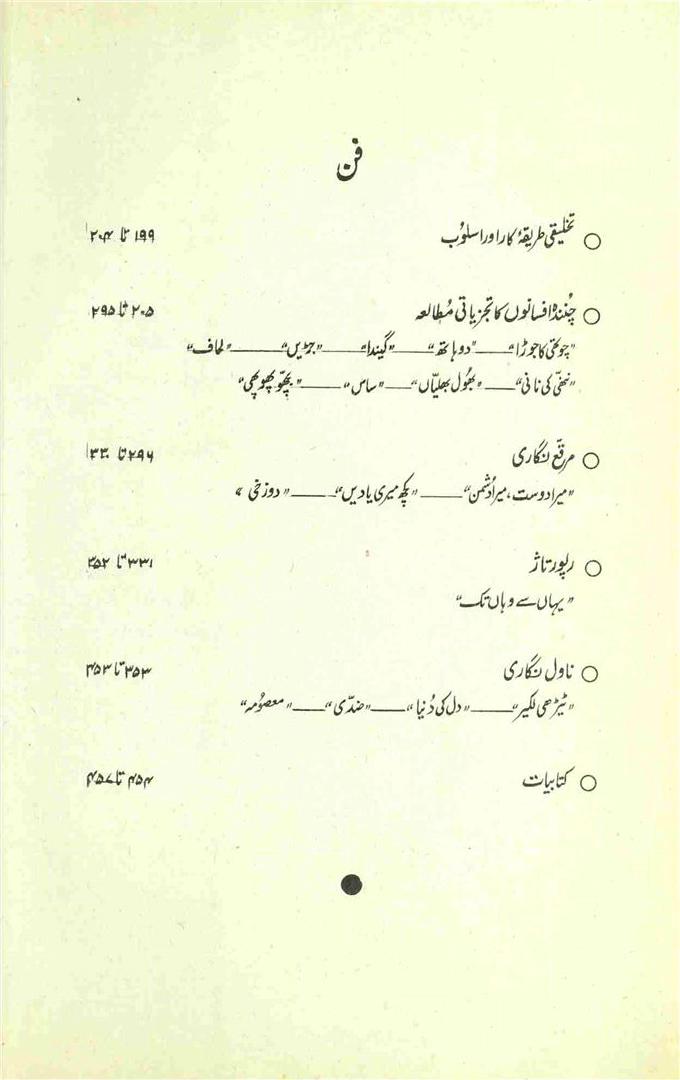 فن
○ تخلیقی طریقۂ کار اور اسلُوب ۱۹۹ تا ۲۰۴
○ چُنندہ افسانوں کا تجزیاتی مُطالعہ ۲۰۵ تا ۲۹۵
"چوتھی کا جوڑا" —— "دو ہاتھ" —— "گیندا" —— "جڑیں" —— "لحاف"
"ننھی کی نانی" —— "بھُول بھلیّاں" —— "ساس" —— "بچھّو پھوپھی"
○ مرقّع نگاری ۲۹۶ تا ۳۳۰
"میرا دوست، میرا دُشمن" —— "کچھ میری یادیں" —— "دوزخی"
○ رپورتاژ ۳۳۱ تا ۳۵۲
"یہاں سے وہاں تک"
○ ناول نگاری ۳۵۳ تا ۴۵۳
"ٹیڑھی لکیر" —— "دل کی دُنیا" —— "ضدّی" —— "معصُومہ"
○ کتابیات ۴۵۴ تا ۴۵۷